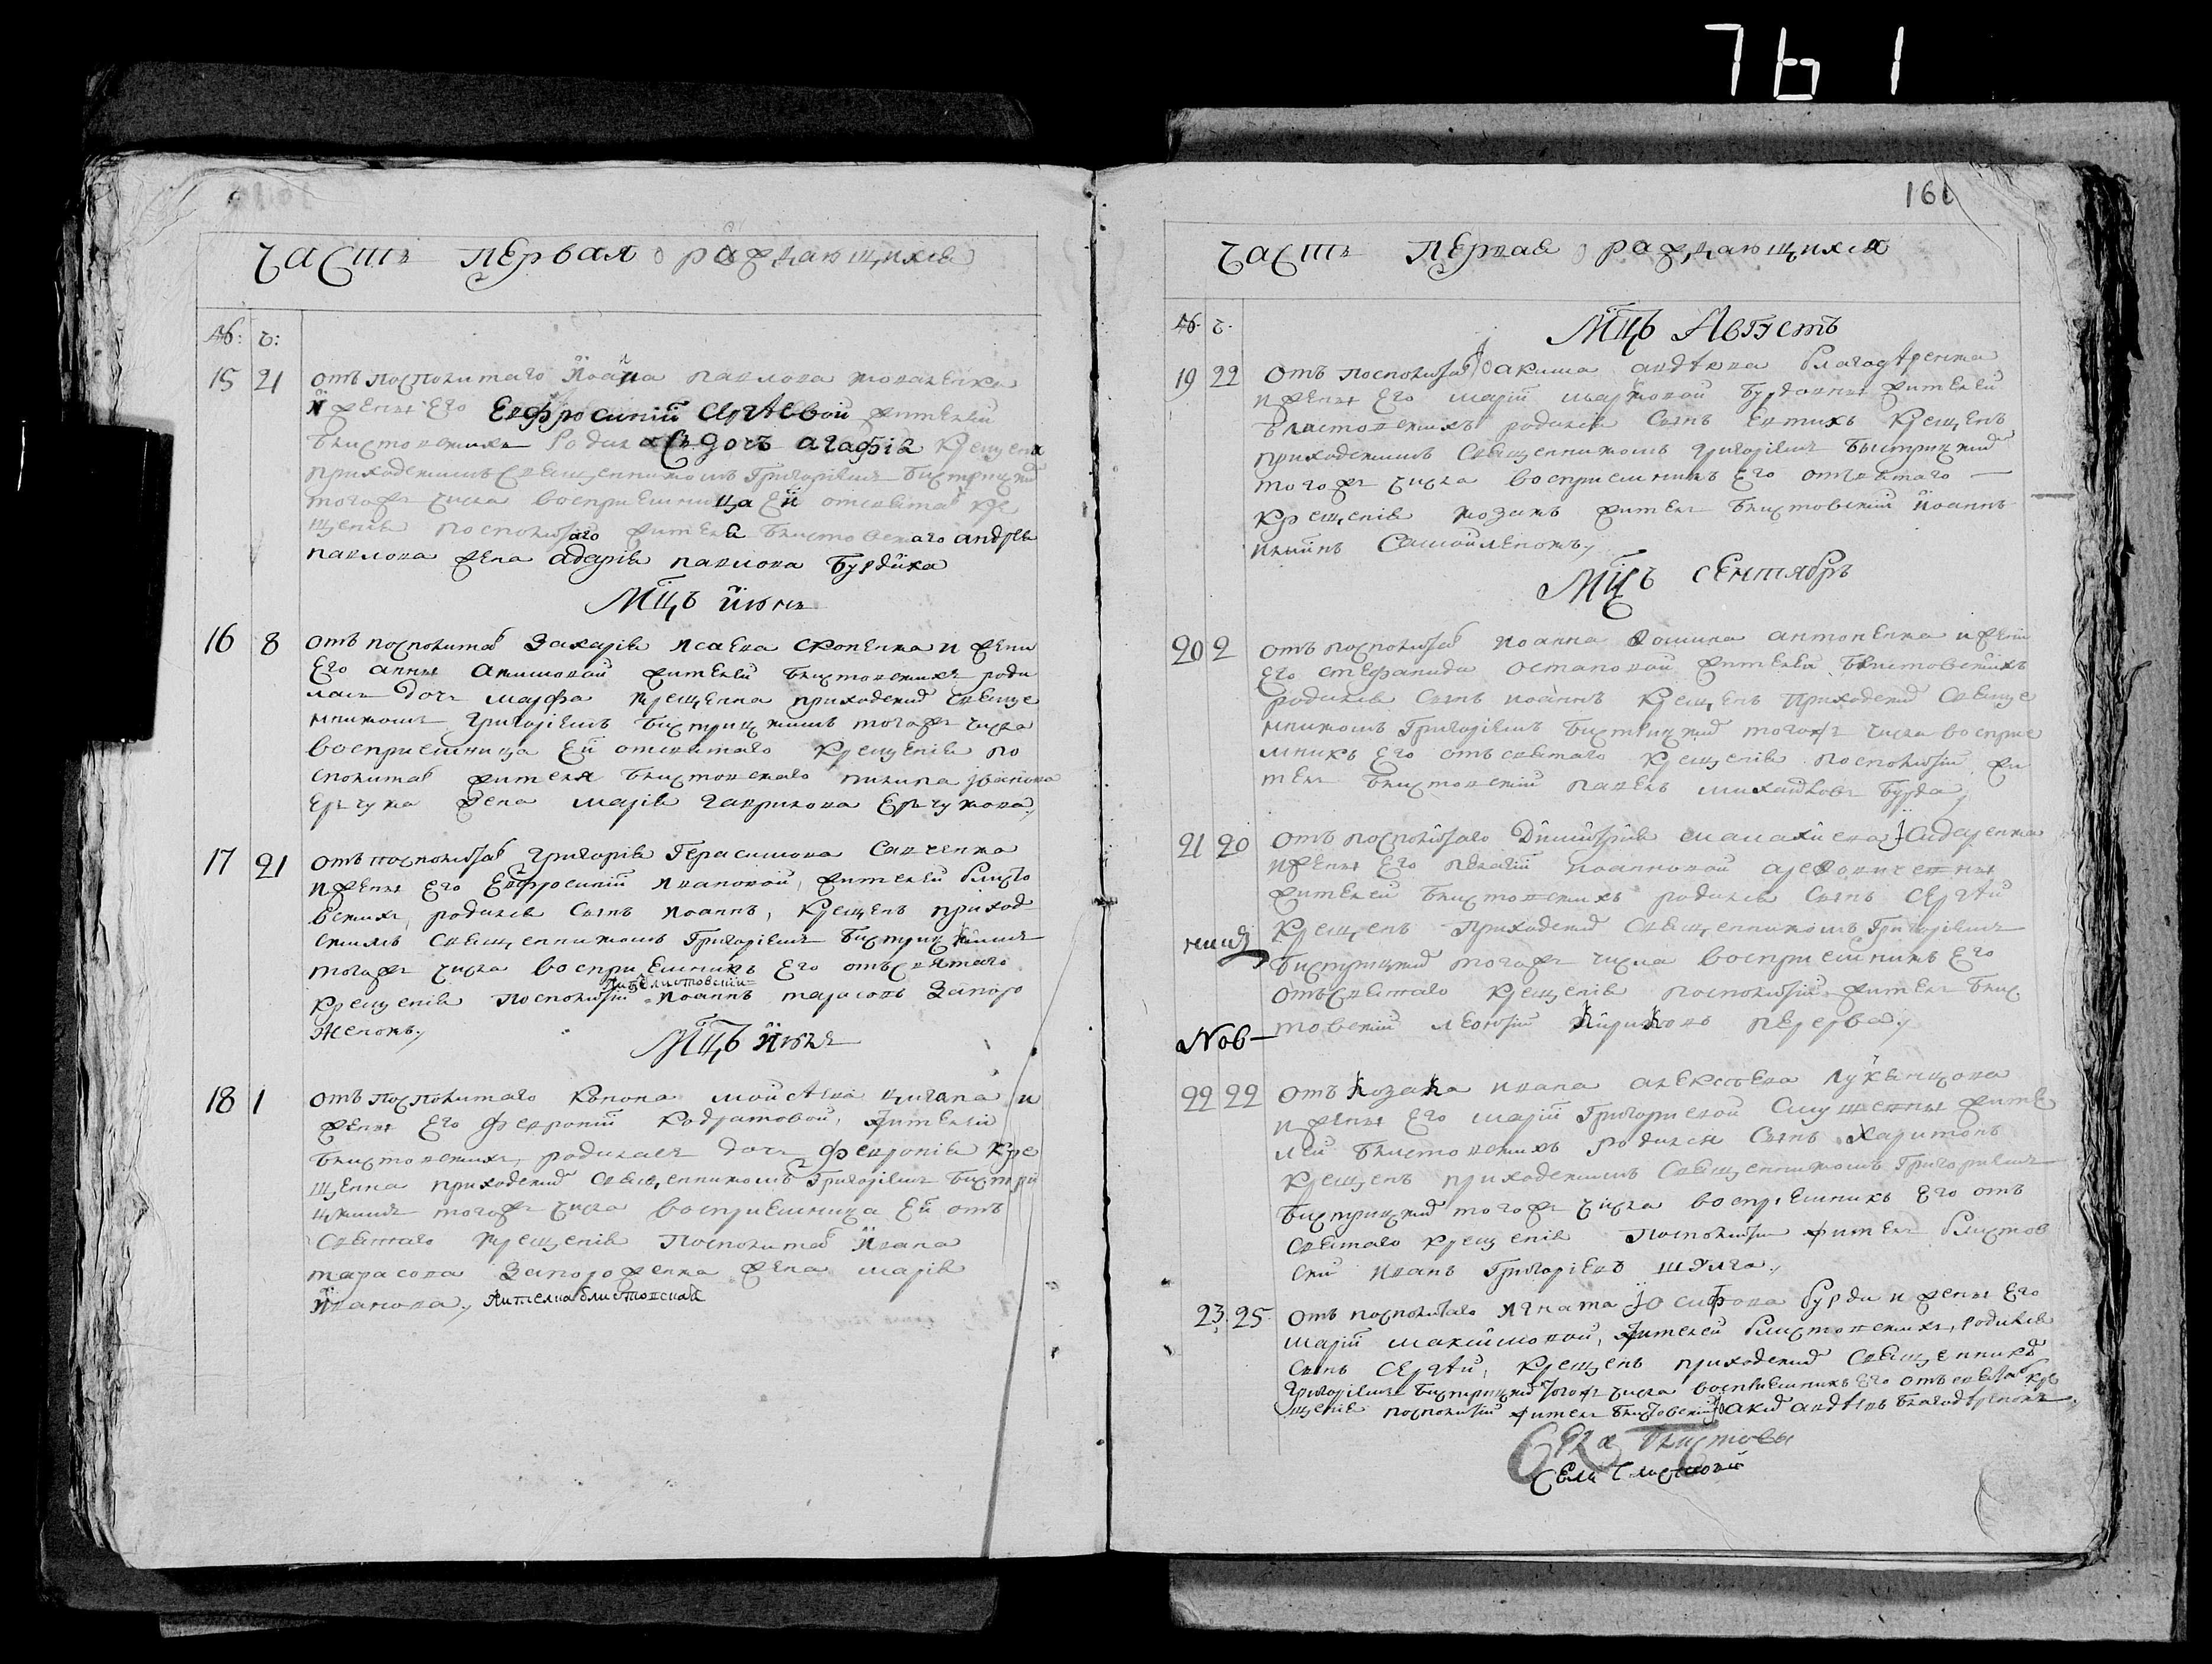 761
161
часть первая о раждающихся
№: ч:
15 21 отъ посполитаго Iоана павлова коваленка
и жены его Евфросинiи Сергѣевой жителей
блистовскихъ родилася дочъ агафiя крещена
приходскимъ священникомъ Григорiемъ Бистрицкимъ
тогожъ числа восприемница ей отсвятаго кре
щенiя посполитаго жителя блистовскаго андрея
павлова жена дарiя павлова Бурдика
Мцъ iюнь
16 8 отъ посполитаго Захарiя Исаева скопенка и жени
Его анны акимовой жителей блистовскихъ роди
лась дочь марфа крещенна приходским свяще
нникомъ Григорiемъ Бистрицкимъ тогожъ числа
восприемница ей отсвятаго крещенiя по
сполитаго жителя блистовскаго пилипа iванова
жена марiя гаврилова
17 21 отъ посполитаго Григорiя Герасимова Савченка
и жены его Евфросинiи Ивановой, жителей блисто
вскихъ, родился сынъ Иоаннъ, крещенъ приход
скимъ священникомъ Григорiемъ Бистрицкимъ
тогожъ числа восприемникъ Его отъ святаго
жит: блистовскiй
крещенiя посполитiй Иоаннъ тарасовъ Запоро
женокъ,
Мцъ iюль
18 1 отъ посполитаго Конона мойсѣева цигана и
жены Его Февронiи Кодратовой, жителей
блистовскихъ, родилась дочь Февронiя кре
щенна приходским священникомъ Григорiемъ Бистри
цкимъ тогожъ числа восприемница Ей отъ
святаго крещенiя посполитаго Ивана
тарасова Запороженка жена марiя
Иванова, жителка блистовская
часть первая о раждающихся
№: ч:
Мцъ Августъ
19 22 отъ посполитаго Iоакима авдѣева благодѣренка
и жены Его марiи марковой жителей
блистовскихъ родился сынъ Евтихъ крещенъ
приходскимъ священникомъ григорiемъ Быстрицким
тогожъ числа восприемникъ Его отсвятаго
крещенiя козакъ житель блистовскiй iоаннъ
Самойленокъ,
Мцъ сентябръ
20 2 отъ посполитаго Иоанна Фомина антоненка и жени
Его стефанида остаповой жителей блистовскихъ
родился сынъ иоаннъ крещенъ приходским свяще
нникомъ Григорiемъ Бистрицким тогожъ числа восприе
мникъ Его отъ святаго крещенiя посполитiй жи
тель блистовскiй павелъ михайловъ бурда,
21 20 отъ посполитаго Димитрiя малахiева Сидаренка
и жены Его пелагiи иоанновой
жителей блистовскихъ родился сынъ Сергѣй
крещенъ приходским священникомъ Григорiемъ
Бистрицким тогожъ числа восприемникъ Его
отъ святаго крещенiя посполитiй житель блис
товскiй леонтiй Кириковъ перерва,
Nов-
22 22 отъ Козака ивана алексѣева Лукянцова
и жены Его марiи Григориевой жите
лей блистовскихъ родился сынъ Харитонъ
крещенъ приходскимъ священникомъ Григориемъ
Бистрицким тогожъ числа восприемникъ Его отъ
святаго крещенiя посполитiй житель блистов
ски иванъ Григорiевъ шулга,
23 25 отъ посполитаго игната iосифова бурди и жены Его
марiи максимовой, жителей блистовскихъ, родился
сынъ Сергѣй, крещенъ приходским священником
Григорiемъ Бистрицким тогожъ числа восприемникъ Его отъ святаго кре
щенiя посполитiй житель блистовскiй Iоаким авдѣевъ благодѣренокъ
Села Блистовы
села